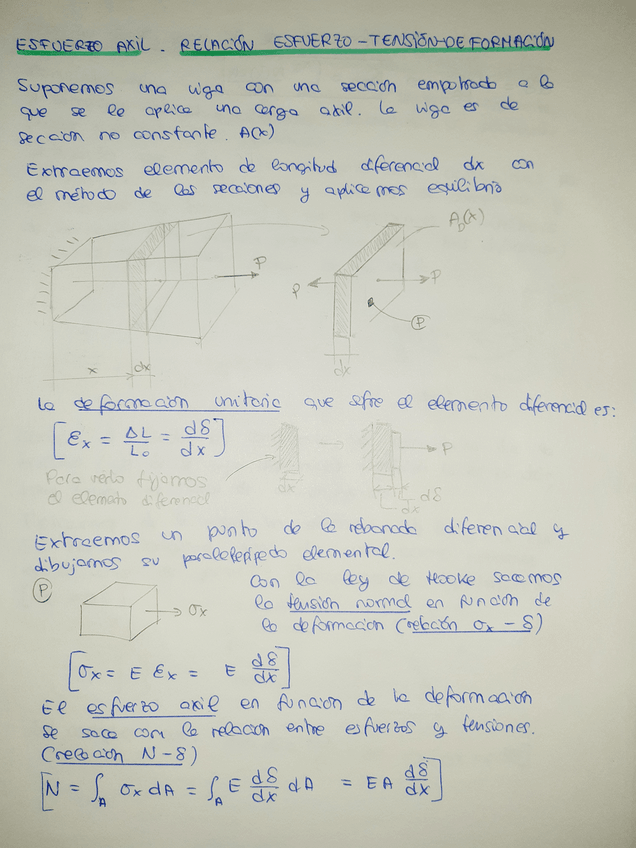 ESFUERZO AXIL. RELACIÓN ESFUERZO-TENSIÓN-DEFORMACIÓN
Suponemos una viga con una sección empotrado a la
que se le aplica una carga axil. La viga es de
sección no constante. A(x)
Extraemos elemento de longitud diferencial dx con
el método de las secciones y aplicamos equilibrio
A_D(x)
P
P
P
P
x
dx
dx
La deformación unitaria que sufre el elemento diferencial es:
[Ɛx = ΔL/L₀ = dδ/dx]
P
Para verlo fijamos
el elemento diferencial
dx
dx
dδ
Extraemos un punto de la rebanada diferencial y
dibujamos su paralelepípedo elemental.
P
σx
Con la ley de Hooke sacamos
la tensión normal en función de
la deformación (relación σx - δ)
[σx = E Ɛx = E dδ/dx]
El esfuerzo axil en función de la deformación
se saca con la relación entre esfuerzos y tensiones.
(relación N-δ)
[N = ∫_A σx dA = ∫_A E dδ/dx dA = EA dδ/dx]